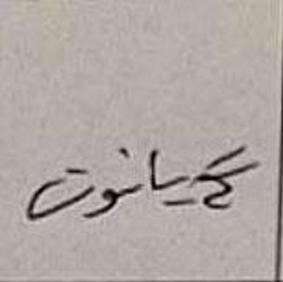 گەیانوت